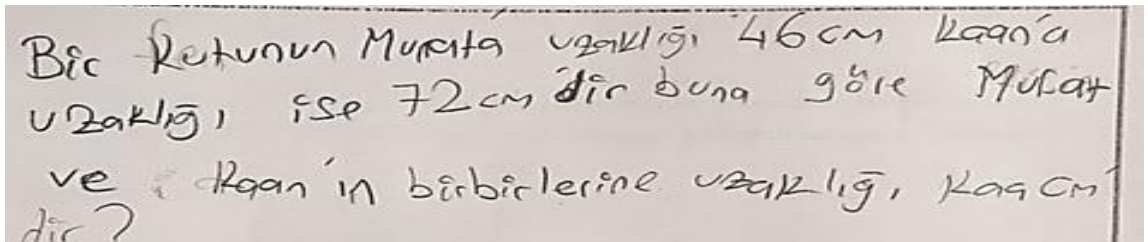 Bir kutunun Murata uzaklığı 46 cm Kaan'a
uzaklığı ise 72 cm dir buna göre Murat
ve Kaan'ın birbirlerine uzaklığı kaç cm
dir?